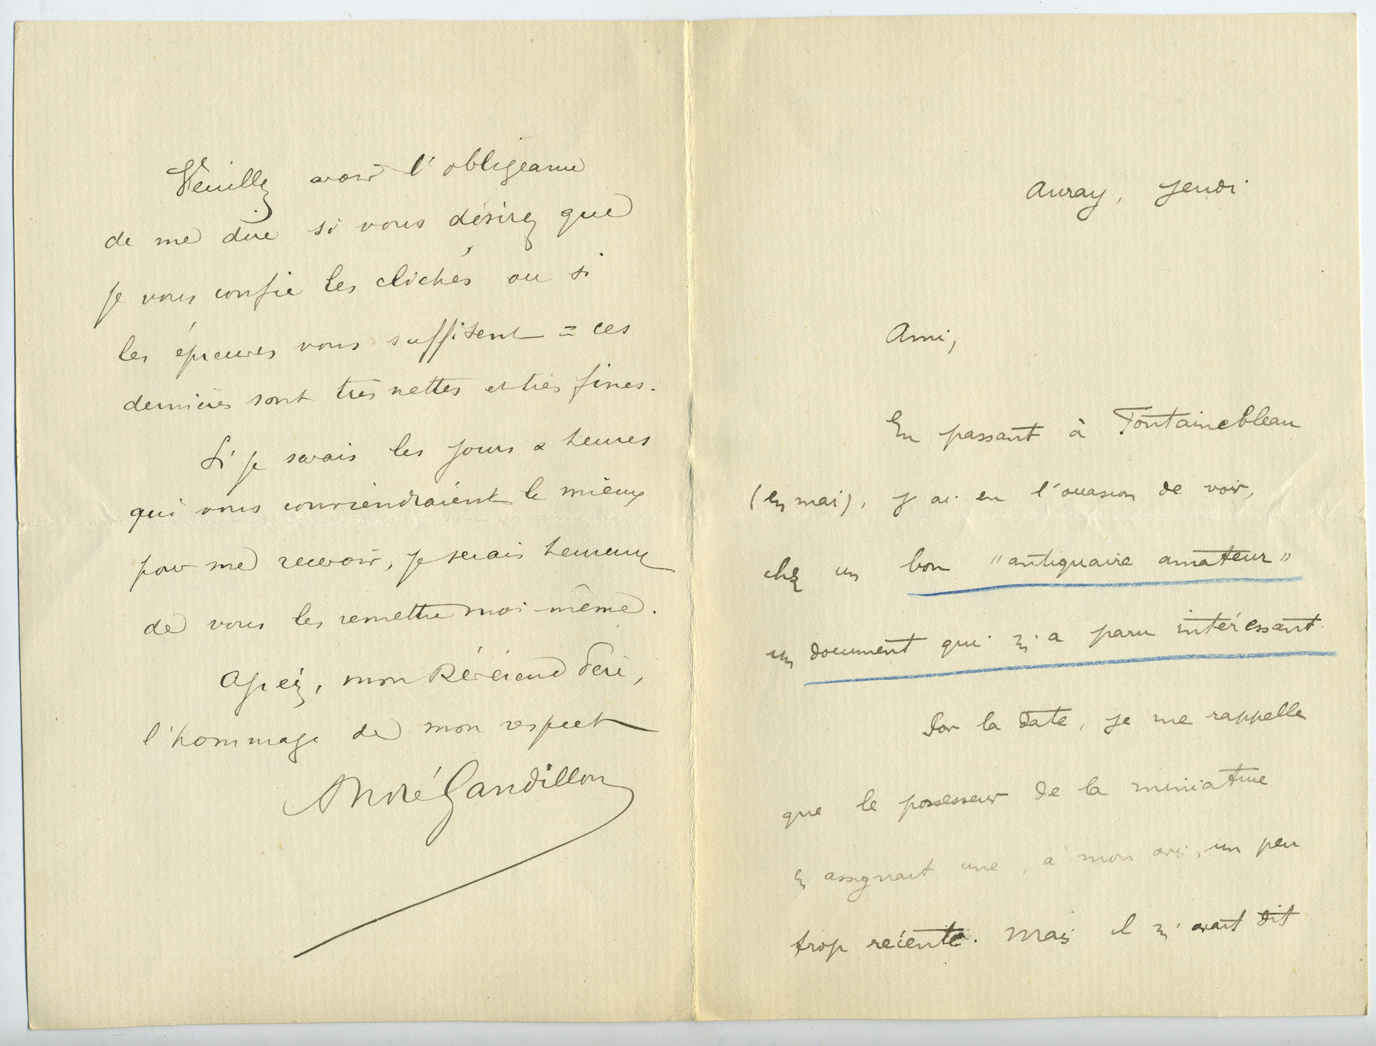 Veuillez avoir l'obligeance
de me dire si vous désirez que
je vous confie les clichés ou si
les épreuves vous suffisent = ces
dernières sont très nettes et très fines.
Si je savais les jours & heures
qui vous conviendraient le mieux
pour me recevoir, je serais heureux
de vous les remettre moi-même.
Agréez, mon Révérend Père,
l'hommage de mon respect
André Gandillon
Auray, Jeudi
Ami,
En passant à Fontainebleau
(en mai), j'ai eu l'occasion de voir,
chez un bon "antiquaire amateur"
un document qui m'a paru intéressant.
Pour la date, je me rappelle
que le possesseur de la miniature
en assignait une, à mon avis, un peu
trop récente. Mais il m'avait dit